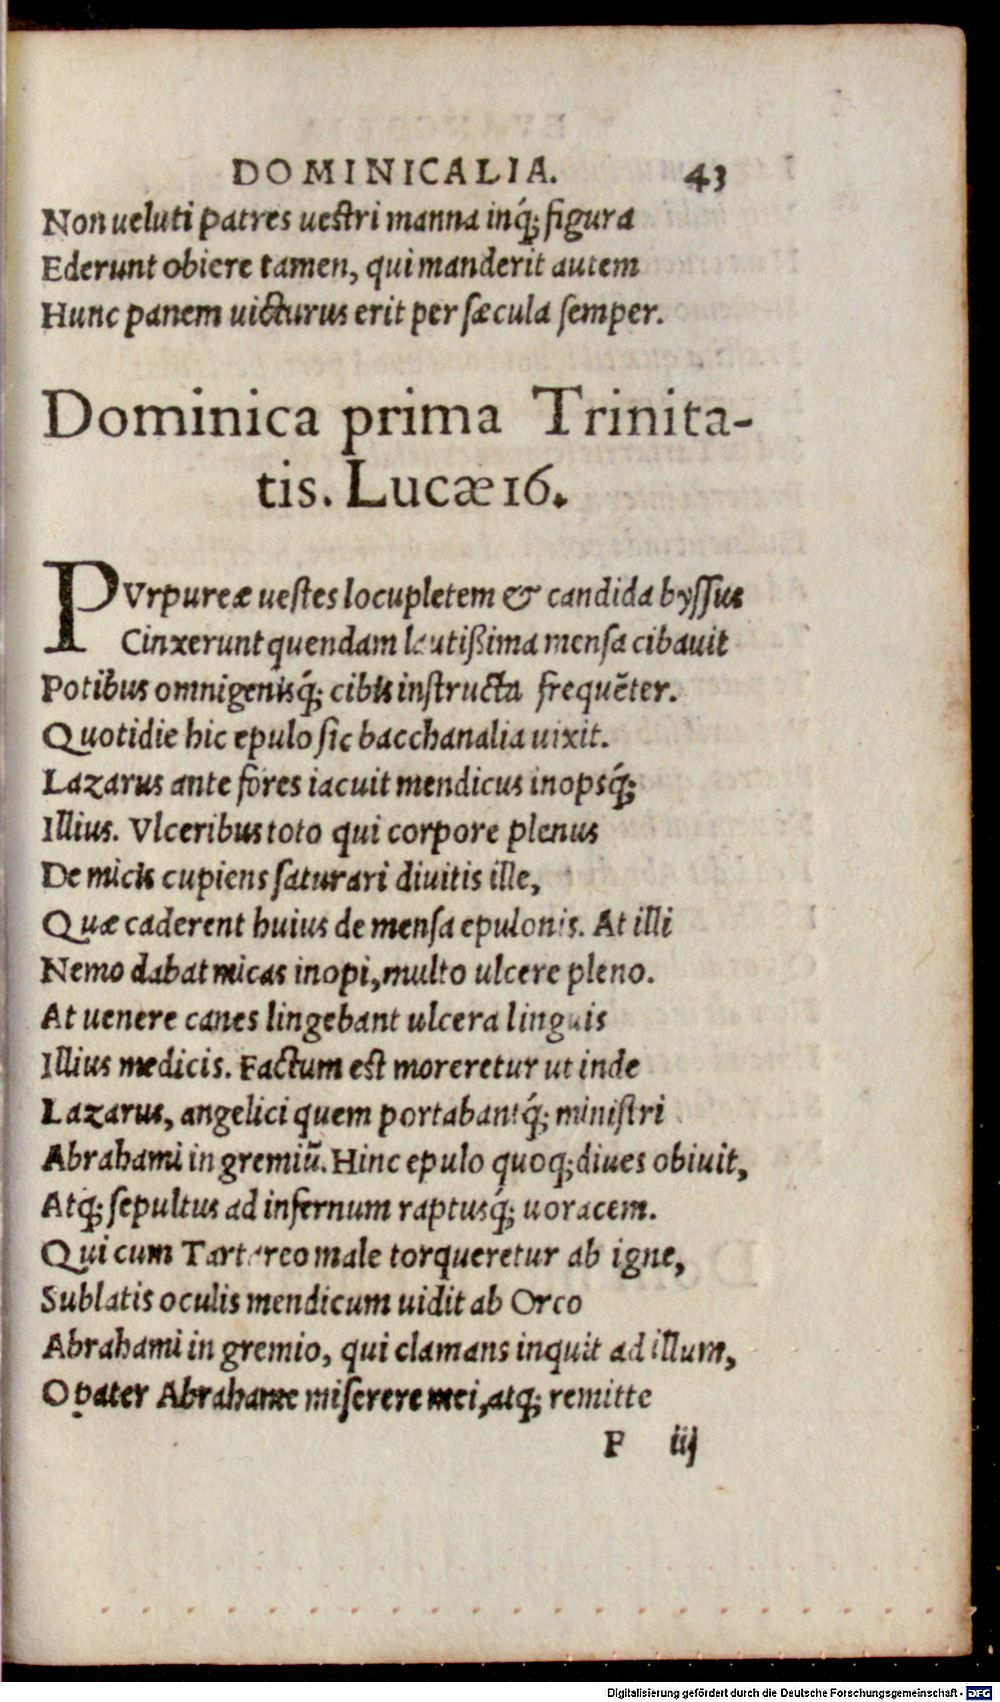 DOMINICALIA. 43
Non ueluti patres uestri manna inq́; figura
Ederunt obiere tamen, qui manderit autem
Hunc panem uicturus erit per sæcula semper.
Dominica prima Trinita-
tis. Lucæ 16.
PVrpureæ uestes locupletem & candida byssus
Cinxerunt quendam lautißima mensa cibauit
Potibus omnigenisq́; cibis instructa frequẽter.
Quotidie hic epulo sic bacchanalia uixit.
Lazarus ante fores iacuit mendicus inopsq́;
Illius. Vlceribus toto qui corpore plenus
De micis cupiens saturari diuitis ille,
Quæ caderent huius de mensa epulonis. At illi
Nemo dabat micas inopi, multo ulcere pleno.
At uenere canes lingebant ulcera linguis
Illius medicis. Factum est moreretur ut inde
Lazarus, angelici quem portabantq́; ministri
Abrahami in gremiũ. Hinc epulo quoq; diues obiuit,
Atq; sepultus ad infernum raptusq́; uoracem.
Qui cum Tartareo male torqueretur ab igne,
Sublatis oculis mendicum uidit ab Orco
Abrahami in gremio, qui clamans inquit ad illum,
O pater Abrahame miserere mei, atq; remitte
F iij
Digitalisierung gefördert durch die Deutsche Forschungsgemeinschaft - DFG